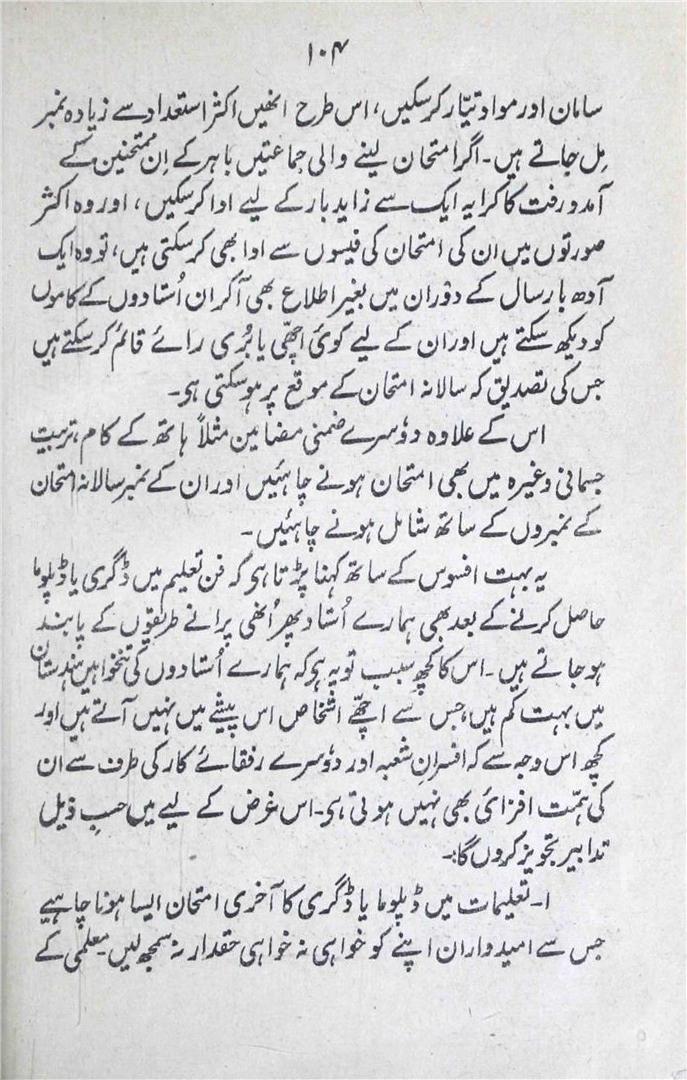 ۱۰۴
سامان اور مواد تیّار کرسکیں، اس طرح انھیں اکثر استعداد سے زیادہ نمبر
مِل جاتے ہیں۔ اگر امتحان لینے والی جماعتیں باہر کے اِن ممتحنین کے
آمد و رفت کا کرایہ ایک سے زاید بار کے لیے ادا کرسکیں، اور وہ اکثر
صورتوں میں ان کی امتحان کی فیسوں سے ادا بھی کرسکتی ہیں، تو وہ ایک
آدھ بار سال کے دوْران میں بغیر اطلاع بھی آکر ان اُستادوں کے کاموں
کو دیکھ سکتے ہیں اور ان کے لیے کوئ اچھّی یا بُری رائے قائم کرسکتے ہیں
جس کی تصدیق کہ سالانہ امتحان کے موقع پر ہوسکتی ہی۔
اس کے علاوہ دوٗسرے ضمنی مضامین مثلاً ہاتھ کے کام، تربیت
جسمانی وغیرہ میں بھی امتحان ہونے چاہئیں اور ان کے نمبر سالانہ امتحان
کے نمبروں کے ساتھ شامل ہونے چاہئیں۔
یہ بہت افسوس کے ساتھ کہنا پڑتا ہی کہ فن تعلیم میں ڈگری یا ڈپلوما
حاصل کرنے کے بعد بھی ہمارے اُستاد پھر اُنھی پرانے طریقوں کے پابند
ہو جاتے ہیں۔ اس کا کچھ سبب تو یہ ہی کہ ہمارے اُستادوں کی تنخواہیں ہندستان
میں بہت کم ہیں، جس سے اچھّے اشخاص اس پیشے میں نہیں آتے ہیں اور
کچھ اس وجہ سے کہ افسرانِ شعبہ اور دوٗسرے رفقائے کار کی طرف سے ان
کی ہمّت افزائ بھی نہیں ہوتی ہی۔ اس غرض کے لیے میں حسبِ ذیل
تدابیر تجویز کروں گا:۔
۱۔ تعلیمات میں ڈپلوما یا ڈگری کا آخری امتحان ایسا ہونا چاہیے
جس سے امیدواران اپنے کو خواہی نہ خواہی حقدار نہ سمجھ لیں۔ معلمی کے